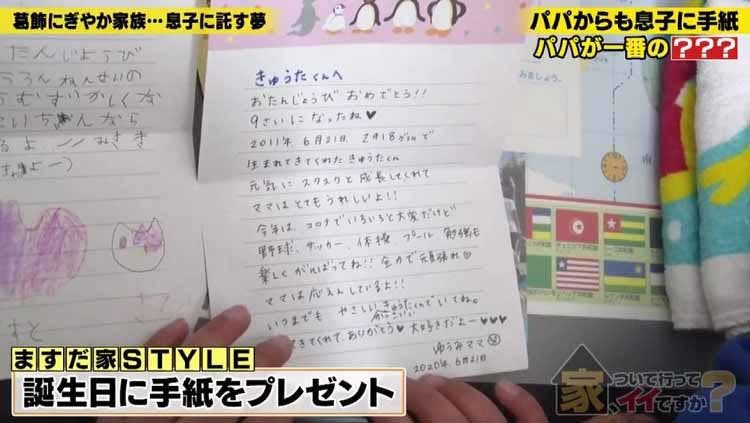 葛飾にぎやか家族…息子に託す夢
パパからも息子に手紙
パパが一番の???
たんじょうび
むずかしくな
きゅうたくんへ
おたんじょうび おめでとう!!
9さいになったね♥
2011年 6月21日 2918グラムで
生まれてきてくれた きゅうたくん
元気に スクスクと 成長してくれて
ママは とても うれしいよ!!
今年は、コロナでいろいろと大変だけど
野球、サッカー、体操、プール 勉強も
楽しく がんばってね!! 全力で 頑張れ♡
ママは 応えんしているよ!!
いつまでも やさしい きゅうたくんでいてね。
かっこいい
きてくれて、ありがとう♥ 大好きだよー♥♥♥
ゆうみママ
2020年 6月21日
ますだ家STYLE
誕生日に手紙をプレゼント
家、ついて行ってイイですか?